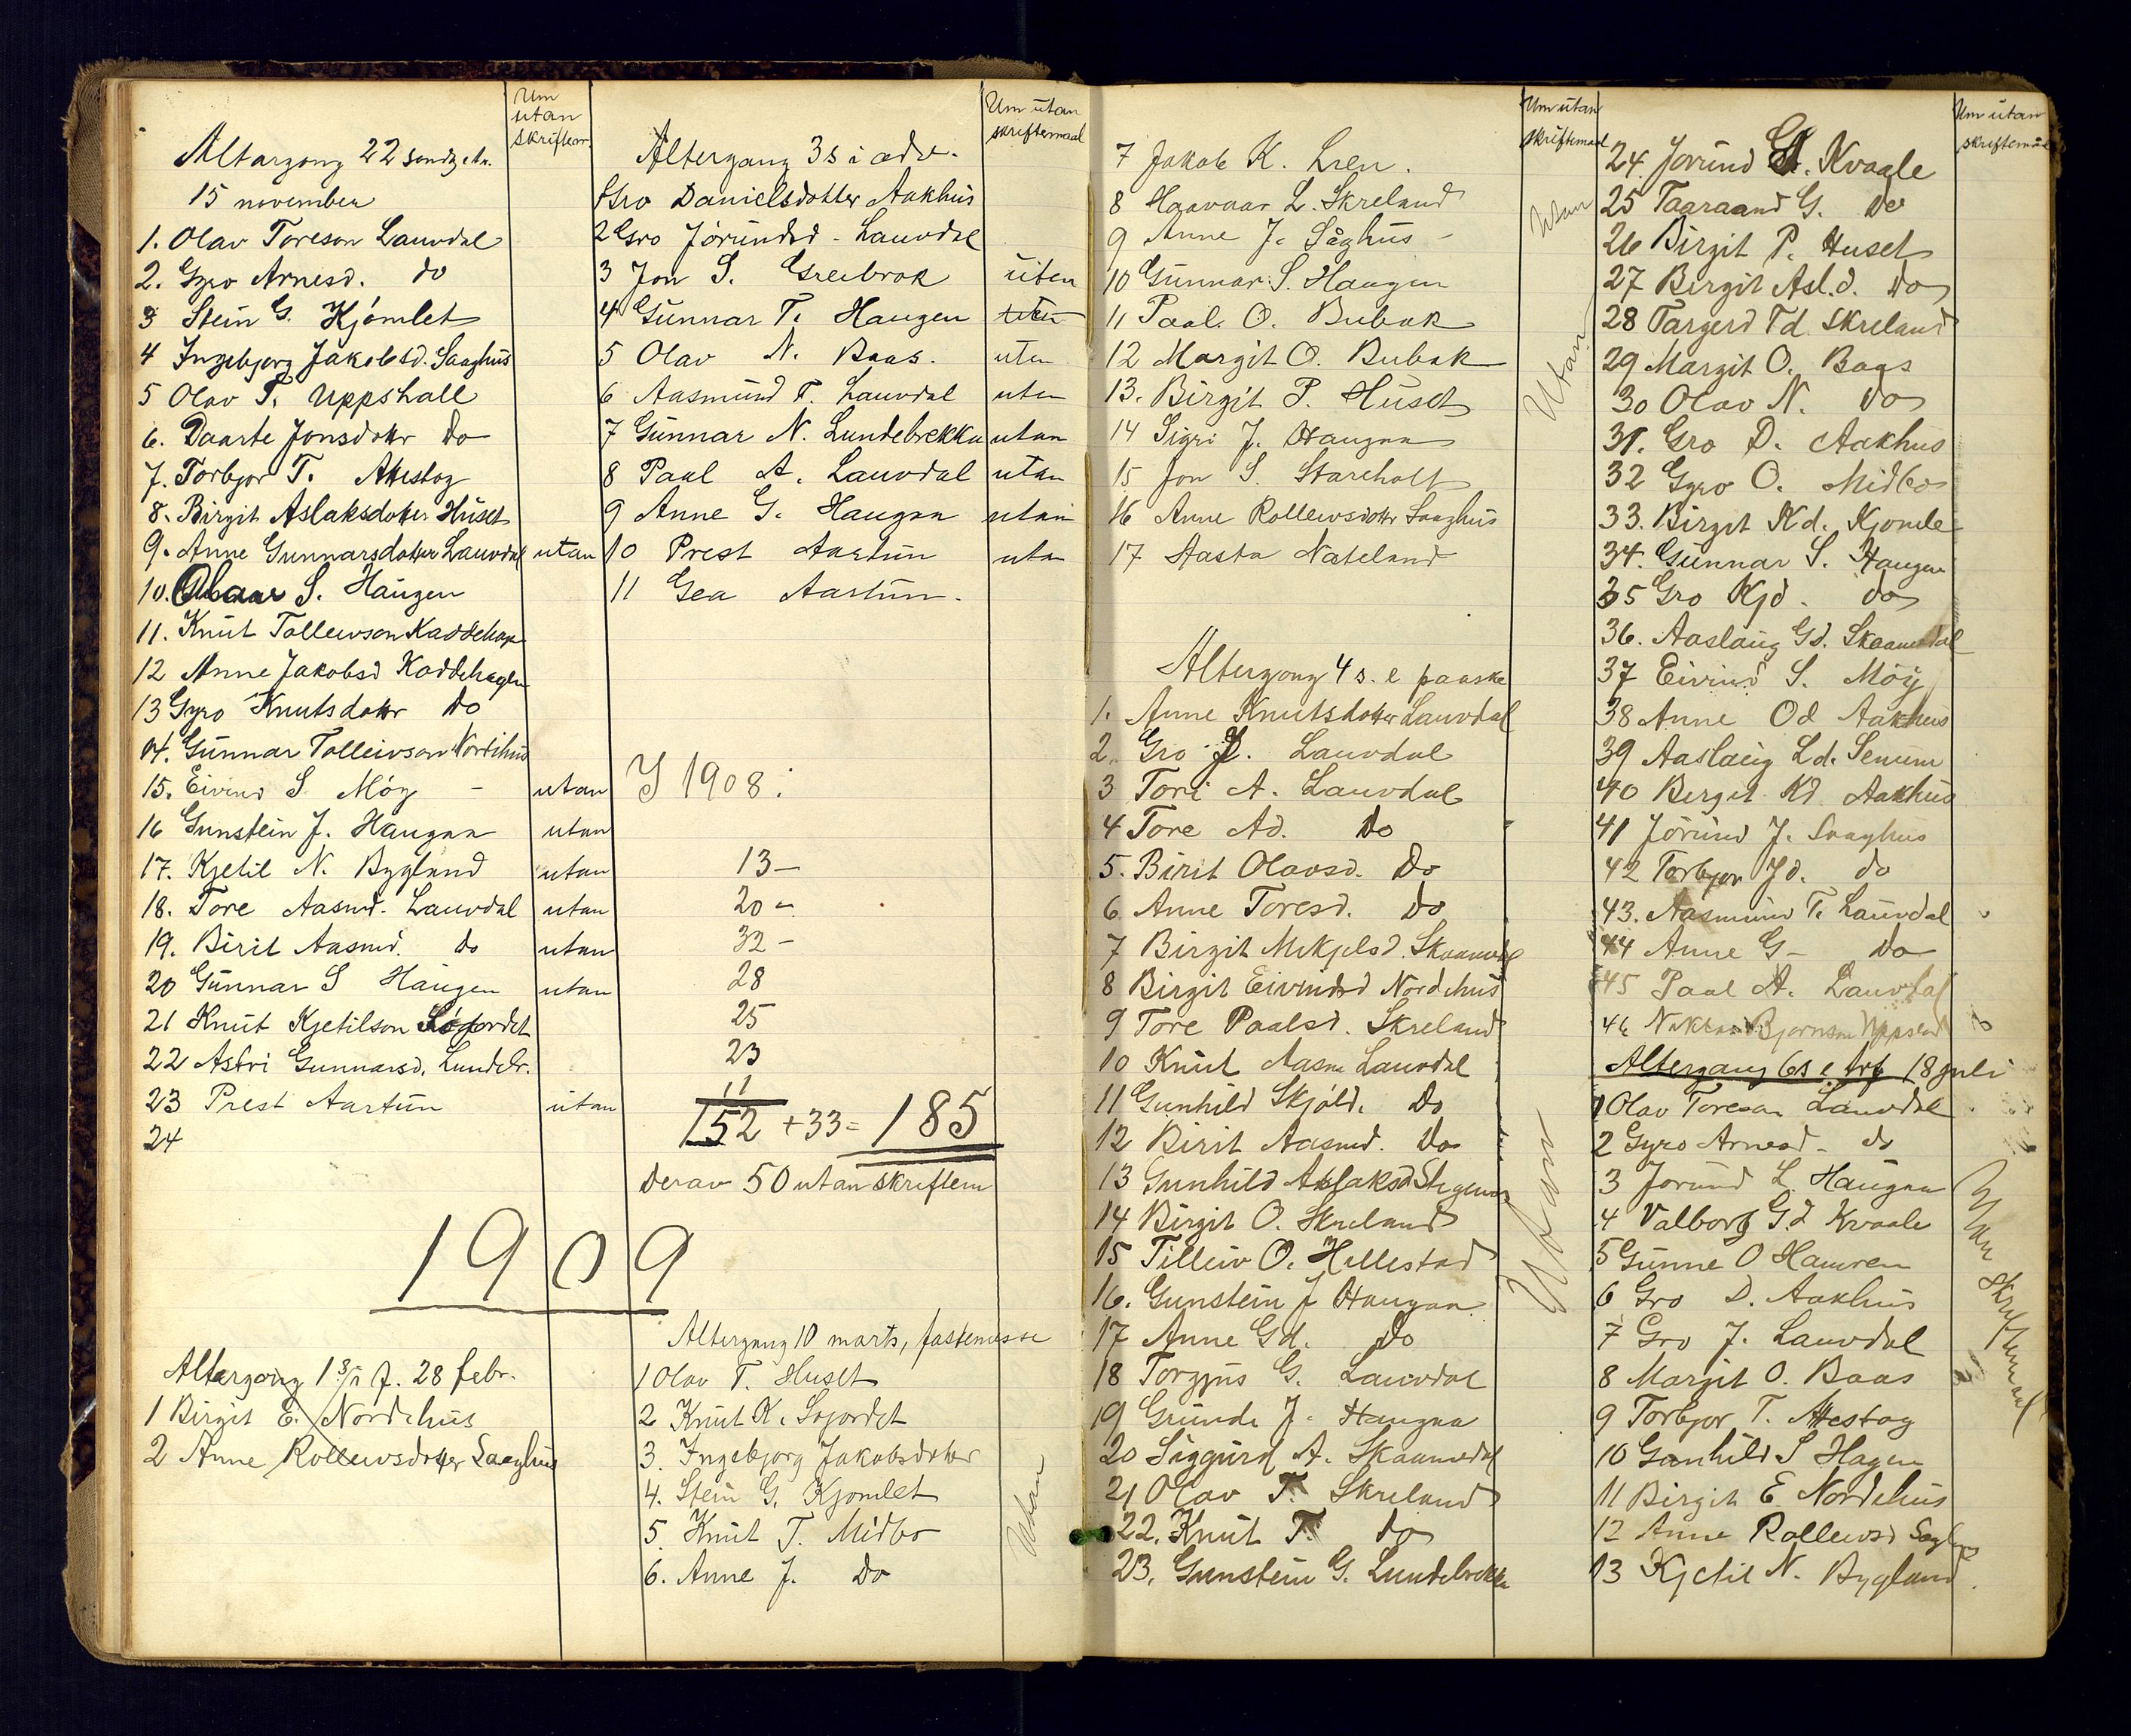 Um
utan
skriftem.
Altargong 22 sondg e tr.
15 november
1. Olav Toreson Lauvdal
2. Gyro Arnesd. do
3 Stein G. Kjómlet
4 Ingebjorg Jakobsd. Saaghus
5 Olav T. Uppstall
6. Daarte Jonsdotter do
7. Torbjor T. Attestog
8. Birgit Aslaksdotter Húset
9. Anne Gunnarsdotter Lauvdal utan
10. S. Haugen
11. Knut Tolleivson Kaddehagen
12 Anne Jakobsd Kaddehagen
13 Gyro Knutsdotter do
14. Gunnar Tolleivson Nordhus
15. Eivind S Möy - utan
16 Gunstein J. Haugaa utan
17. Kjetil N. Bygland utan
18. Tore Aasmd. Lauvdal utan
19. Birit Aasmd. do utan
20 Gunnar S Haugen utan
21 Knut Kjetilson
22 Astri Gunnarsd. Lundebr.
23 Prest Aartun utan
24
1909
Altergong 1 s i f. 28 febr.
1 Birgit E. Nordehus
2 Anne Rolleivsdotter Saaghus
Um utan
skriftemaal
Altergang 3 s i adv.
Gro Danielsdotter Aakhus
2 Gro Jórundsd - Lauvdal
3 Jon S. Greibrok uten
4 Gunnar T. Haugen uten
5 Olav N. Baas. uten
6 Aasmund T. Lauvdal uten
7 Gunnar N. Lundebrekka utan
8 Paal A. Lauvdal utan
9 Anne G. Haugaa utan
10 Prest Aartun utan
11 Gea Aartun.
I 1908:
13 -
20 -
32 -
28
25
23
11
152 + 33 = 185
Derav 50 utan skriftem
Altergang 10 marts, fastemesse
1 Olav T. Huset
2 Knut K. Lögordet
3. Ingebjorg Jakobsdotter
4. Stein G. Kjomlet
5. Knut T. Midbo
6. Anne J. do
Utan
Um utan
skriftemaal
7 Jakob K. Lien.
8 Haavaar L. Skreland
9 Anne J. Såghus -
10 Gunnar S. Haugen
11 Paal O. Bubak
12 Margit O. Bubak
13. Birgit P. Húset
14 Sigri J. Haugaa
15 Jon S. Stareholt
16 Anne Rolleivsdotter Saaghus
17 Aasta Nateland
Utan
Utan
Altergong 4 s. e paaske
1. Anne Knutsdotter Lauvdal
2. Gro J. Lauvdal
3 Tori A. Lauvdal
4 Tore Ad. do
5. Birit Olavsd. do
6. Anne Toresd. do
7 Birgit Mikjelsd. Skaamedal
8 Birgit Eivindsd Nordehus
9 Tore Paalsd. Skreland
10 Knut Aasm Lauvdal
11 Gunhild Skjöld. do
12 Birit Aasmd. do
13 Gunhild Aslaksd
14 Birgit O. Skreland
15 Tilleiv O. Hillestad
16. Gunstein J Haugaa
17 Anne Gd. do
18 Torgjus G. Lauvdal
19 Grunde J. Haugaa
20 Siggurd A. Skaamedal
21 Olav T. Skreland
22. Knut T. do
23. Gunstein G. Lundebrekka
Utan
Um utan
skriftemål
24. Jorund Kvaale
25 Taaraand G. do
26 Birgit P. Huset
27 Birgit Asl.d. do
28 Targerd Td. Skreland
29 Margit O. Baas
30 Olav N. do
31. Gro D. Aakhus
32 Gyro O. Midbo
33. Birgit Kd. Kjomle
34. Gunnar S. Haugen
35 Gro Kjd. do
36. Aaslaug Gd. Skaamedal
37 Eivind S. Möy
38 Anne Od Aakhus
39 Aaslaug Ld. Senum
40 Bergit Kd Aakhus
41 Jórund J. Saaghus
42 Torbjor Jd. do
43. Aasmund T. Lauvdal
44 Anne G - do
45 Paal A. Lauvdal
46 Bjornson
Altergang 6 s e tref 18 juli
1 Olav Toreson Lauvdal
2 Gyro Arnesd - do
3 Jorund L. Haugaa
4 Valborg G.d Kvaale
5 Gunne O Hamren
6 Gro D. Aakhus
7 Gro J. Lauvdal
8 Margit O. Baas
9 Torbjor T. Attestog
10 Gunhild S Hagen
11 Birgit E. Nordehus
12 Anne Rolleivsd
13 Kjetil N. Bygland
Utan skriftemaal